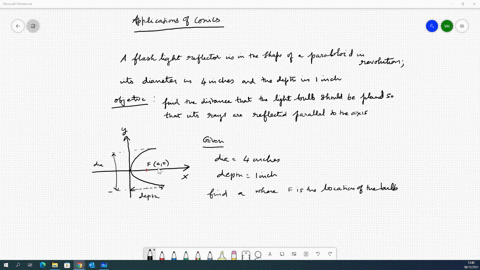 Applications of Conics
A flash light reflector is in the shape of a paraboloid in
revolution;
its diameter is 4 inches and the depth is 1 inch
objective : find the distance that the light bulb should be placed so
that its rays are reflected parallel to the axis
Given
y
dia = 4 inches
dia
F(a,0)
x
depth = 1 inch
depth
find a where F is the location of the bulb